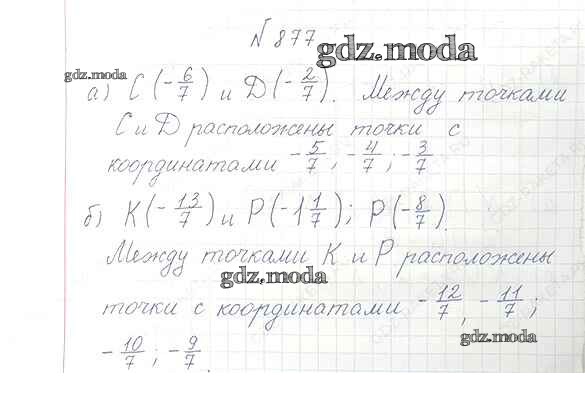 № 877
gdz.moda
gdz.moda
а) C (-6/7) и D (-2/7). Между точками
C и D расположены точки с
координатами -5/7; -4/7; -3/7
б) K (-13/7) и P (-1 1/7); P (-8/7).
Между точками K и P расположены
gdz.moda
точки с координатами -12/7, -11/7;
gdz.moda
-10/7; -9/7.